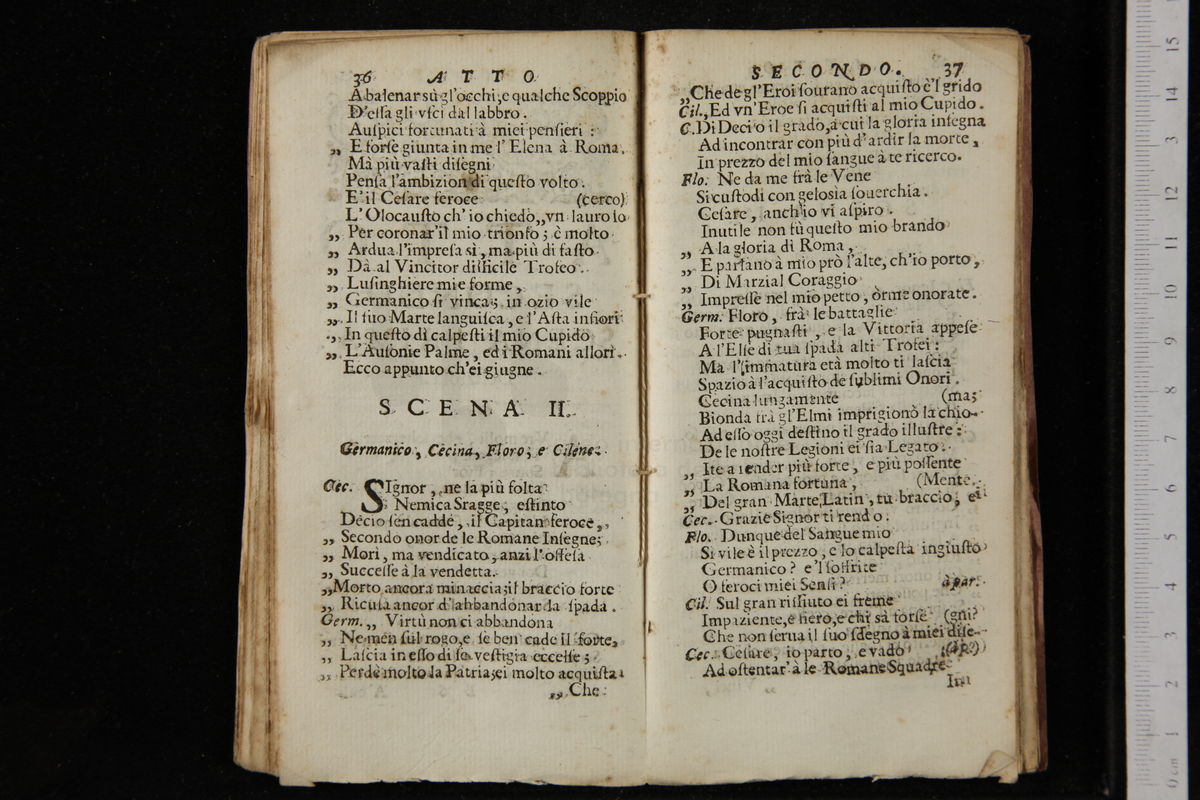 36 ATTO
A balenar sù gl'occhi; e qualche Scoppio
D'essa gli vsci dal labbro.
Auſpici fortunati à miei penſieri :
„ E forſe giunta in me l'Elena à Roma.
Mà più vaſti diſegni
Penſa l'ambizion di queſto volto.
E' il Ceſare feroce (cerco)
L'Olocauſto ch'io chiedo,„ vn lauro io
„ Per coronar'il mio trionfo; è molto
„ Ardua l'impreſa sì, ma più di faſto
„ Dà al Vincitor difficile Trofeo.
„ Luſinghiere mie forme,
„ Germanico ſi vinca; in ozio vile
„ Il ſuo Marte languiſca, e l'Aſta infiori
„ In queſto dì calpeſti il mio Cupido
„ L'Auſonie Palme, ed i Romani allori.
Ecco appunto ch'ei giugne.
SCENA II.
Germanico, Cecina, Floro, e Cilene.
Cec. SIgnor, ne la più folta
Nemica Sragge, eſtinto
Decio ſen cadde, il Capitan feroce,
„ Secondo onor de le Romane Inſegne;
„ Morì, ma vendicato, anzi l'offeſa
„ Succeſſe à la vendetta.
„ Morto ancora minaccia; il braccio forte
„ Ricuſa ancor d'abbandonar la ſpada.
Germ. „ Virtù non ci abbandona
„ Ne men ſul rogo, e ſe ben cade il forte,
„ Laſcia in eſſo di ſe veſtigia eccelſe;
„ Perde molto la Patria; ei molto acquiſta
„ Che
SECONDO. 37
„ Che de gl'Eroi ſourano acquiſto è'l grido
Cil. „ Ed vn'Eroe ſi acquiſti al mio Cupido.
C. Di Decio il grado, à cui la gloria inſegna
Ad incontrar con più d'ardir la morte,
In prezzo del mio ſangue à te ricerco.
Flo. Ne da me frà le Vene
Si cuſtodì con geloſia ſouerchia.
Ceſare, anch'io vi aſpiro.
Inutile non fù queſto mio brando
„ A la gloria di Roma,
„ E parlano à mio prò l'alte, ch'io porto,
„ Di Marzial Coraggio
„ Impreſſe nel mio petto, orme onorate.
Germ. Floro, frà le battaglie
Forte pugnaſti, e la Vittoria appeſe
A l'Elſe di tua ſpada alti Trofei:
Ma l'immatura età molto ti laſcia
Spazio à l'acquiſto de ſublimi Onori.
Cecina lungamente (ma;
Bionda frà gl'Elmi imprigionò la chio-
Ad eſſo oggi deſtino il grado illuſtre:
De le noſtre Legioni ei ſia Legato.
„ Ite a render più forte, e più poſſente
„ La Romana fortuna, (Mente.
„ Del gran Marte Latin, tu braccio, ei
Cec. Grazie Signor ti rendo.
Flo. Dunque del Sangue mio
Sì vile è il prezzo, e lo calpeſta ingiuſto
Germanico? e'l ſoffrite
O feroci miei Senſi? à par.
Cil. Sul gran riffiuto ei freme
Impaziente, e fiero, e chi sà forſe (gni?
Che non ſerua il ſuo ſdegno à miei diſe-
Cec. Ceſare, io parto, e vado (àp?)
Ad oſtentar' à le Romane Squadre